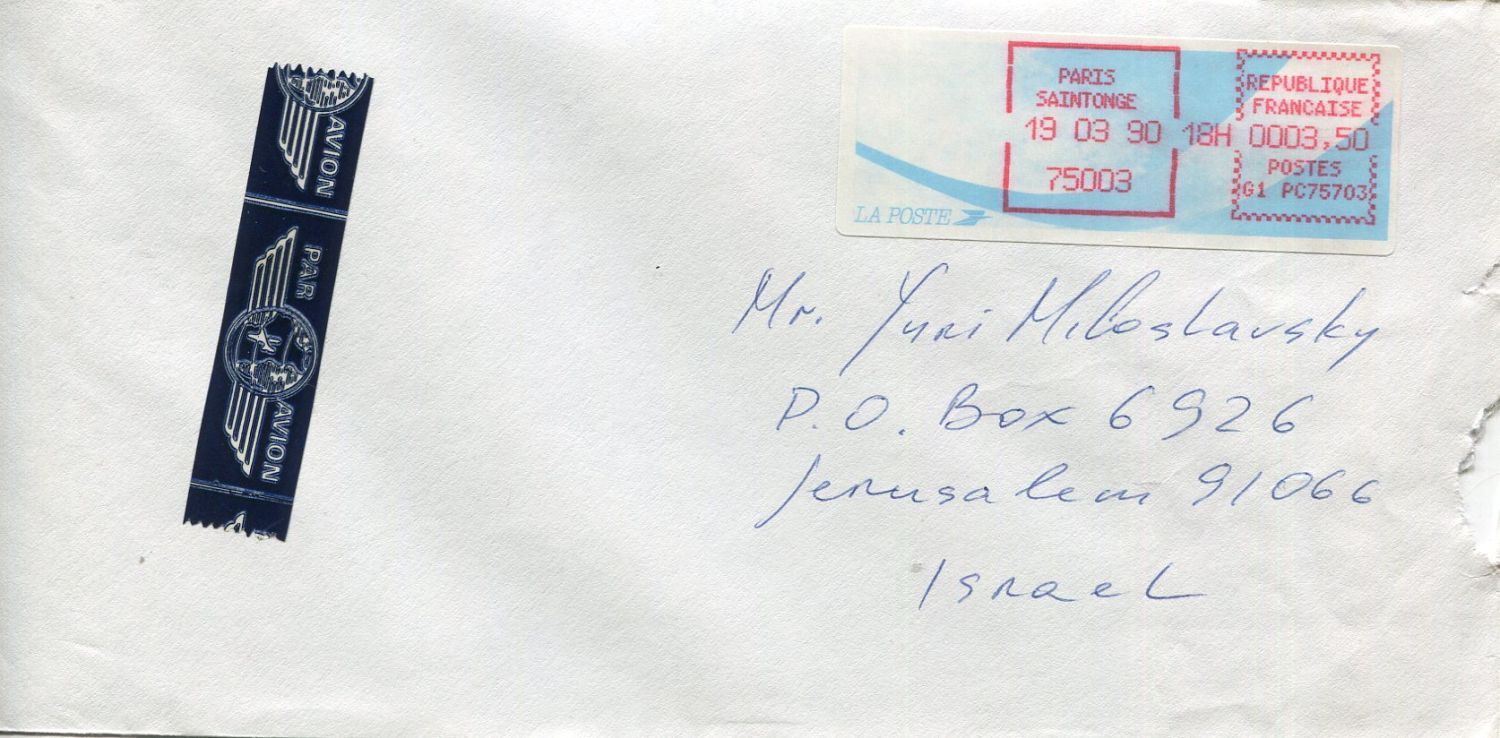 PARIS
SAINTONGE
19 03 90 18H
75003
REPUBLIQUE
FRANCAISE
0003,50
POSTES
G1 PC75703
LA POSTE
AVION
PAR
AVION
Mr. Yuri Miloslavsky
P.O. Box 6926
Jerusalem 91066
Israel